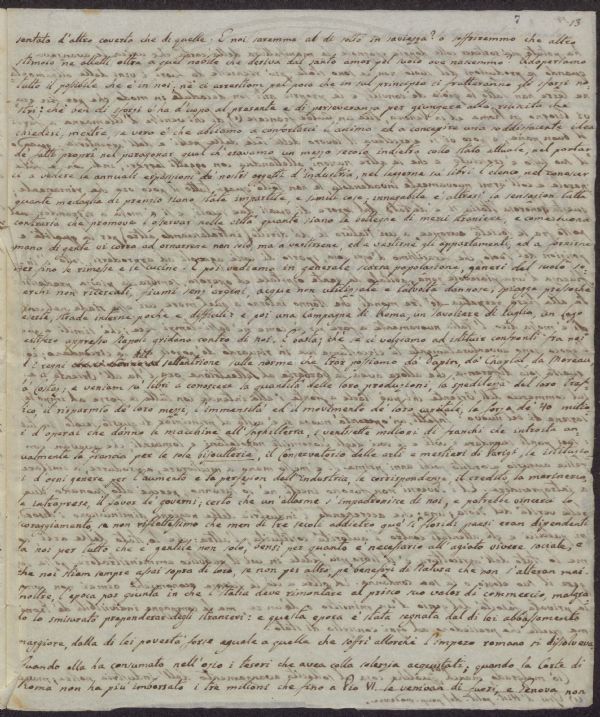 7 13
sentato d'altro coverto che di quelle. E noi saremmo al di sotto in saviezza? o soffriremmo che altro
stimolo ne alletti oltre a quel nobile che deriva dal santo amor pel suolo ove nascemmo? Adoperiamo
tutto il possibile che è in noi; nè ci arrestiam per poco che sul principio si fruttassero gli sforzi no
stri: chè ben di sforzi v'ha d'uopo al presente e di perseveranza per giungere alla riuscita che
chiedesi, mentre se vero è che abbiamo a confortarci l'animo ed a concepire una soddisfacente idea
de' fatti propri nel paragonar quel ch'eravamo un mezzo secolo indietro collo stato attuale, nel portar
ci a vedere le annuali esposizioni de' nostri oggetti d'industria, nel leggerne su' libri l'elenco nel conoscer
quante medaglie di premio siano state impartite, e simili cose; innegabile è altresì la sensazion tutta
contraria che promove l'osservar nello stesso quante siano le botteghe di merci straniere, e come una
mano di gente vi corra ad ornarsene non solo, ma a vestirsene, ed a vestirne gli appartamenti, ed a fornirne
per fino le rimesse e le cucine. E poi vediamo in generale scarsa popolazione, generi del suolo so
verchi non ricercati, fiumi senz'argini, acque non utilizzate e talvolta dannose, piagge pressochè
erte, strade interne poche e difficili: e poi una Campagna di Roma, un Tavoliere di Puglia, un lago
estesissimo appresso Napoli gridano contro di noi. E basta; che se ci volgiamo ad istituir confronti fra noi
e i regni settentrione sulle norme che trar possiamo da Dupin, da Chaptal da Moreau,
a Costaz, e veniam su' libri a conoscere la quantità delle loro produzioni, la speditezza del loro traf
fico, il risparmio de' loro mezzi, l'immensità ed il movimento de' loro vascelli, la forza di 40 milio
ni d'operai che danno le macchine all'Inghilterra, i ventisette milioni di franchi che introita an
nualmente la Francia per le sole bijoutterie, il Conservatorio delle arti e mestieri di Parigi, le istituzio
ni d'ogni genere per l'aumento e la perfezion dell'industria, le corrispondenze, il credito, la marineria,
le intraprese, il favor de' governi; certo che un'allarme s'impadronisce di noi, e potrebbe essercene lo
scoraggiamento, se non riflettessimo che men di tre secoli addietro que' sì floridi paesi eran dipendenti
da noi per tutto che è gentile non solo, bensì per quanto è necessario all'agiato vivere sociale, e
che noi stiam sempre assisi sopra di loro, se non per altro pe' benefizi di natura che non s'alteran mai.
Inoltre, l'epoca pos quanta in che l'Italia deve rimontare al prisco suo valor di commercio, malgra
do lo smisurato preponderar degli stranieri: e quella epoca è stata segnata dal di lei abbassamento
maggiore, dalla di lei povertà forse eguale a quella che soffrì allorchè l'impero romano si dissolveva.
Quando ella ha consumato nell'ozio i tesori che avea colla solerzia acquistati; quando la Corte di
Roma non ha più imborsato i tre milioni che fino a Pio VI. le venivan di fuori, e Genova non